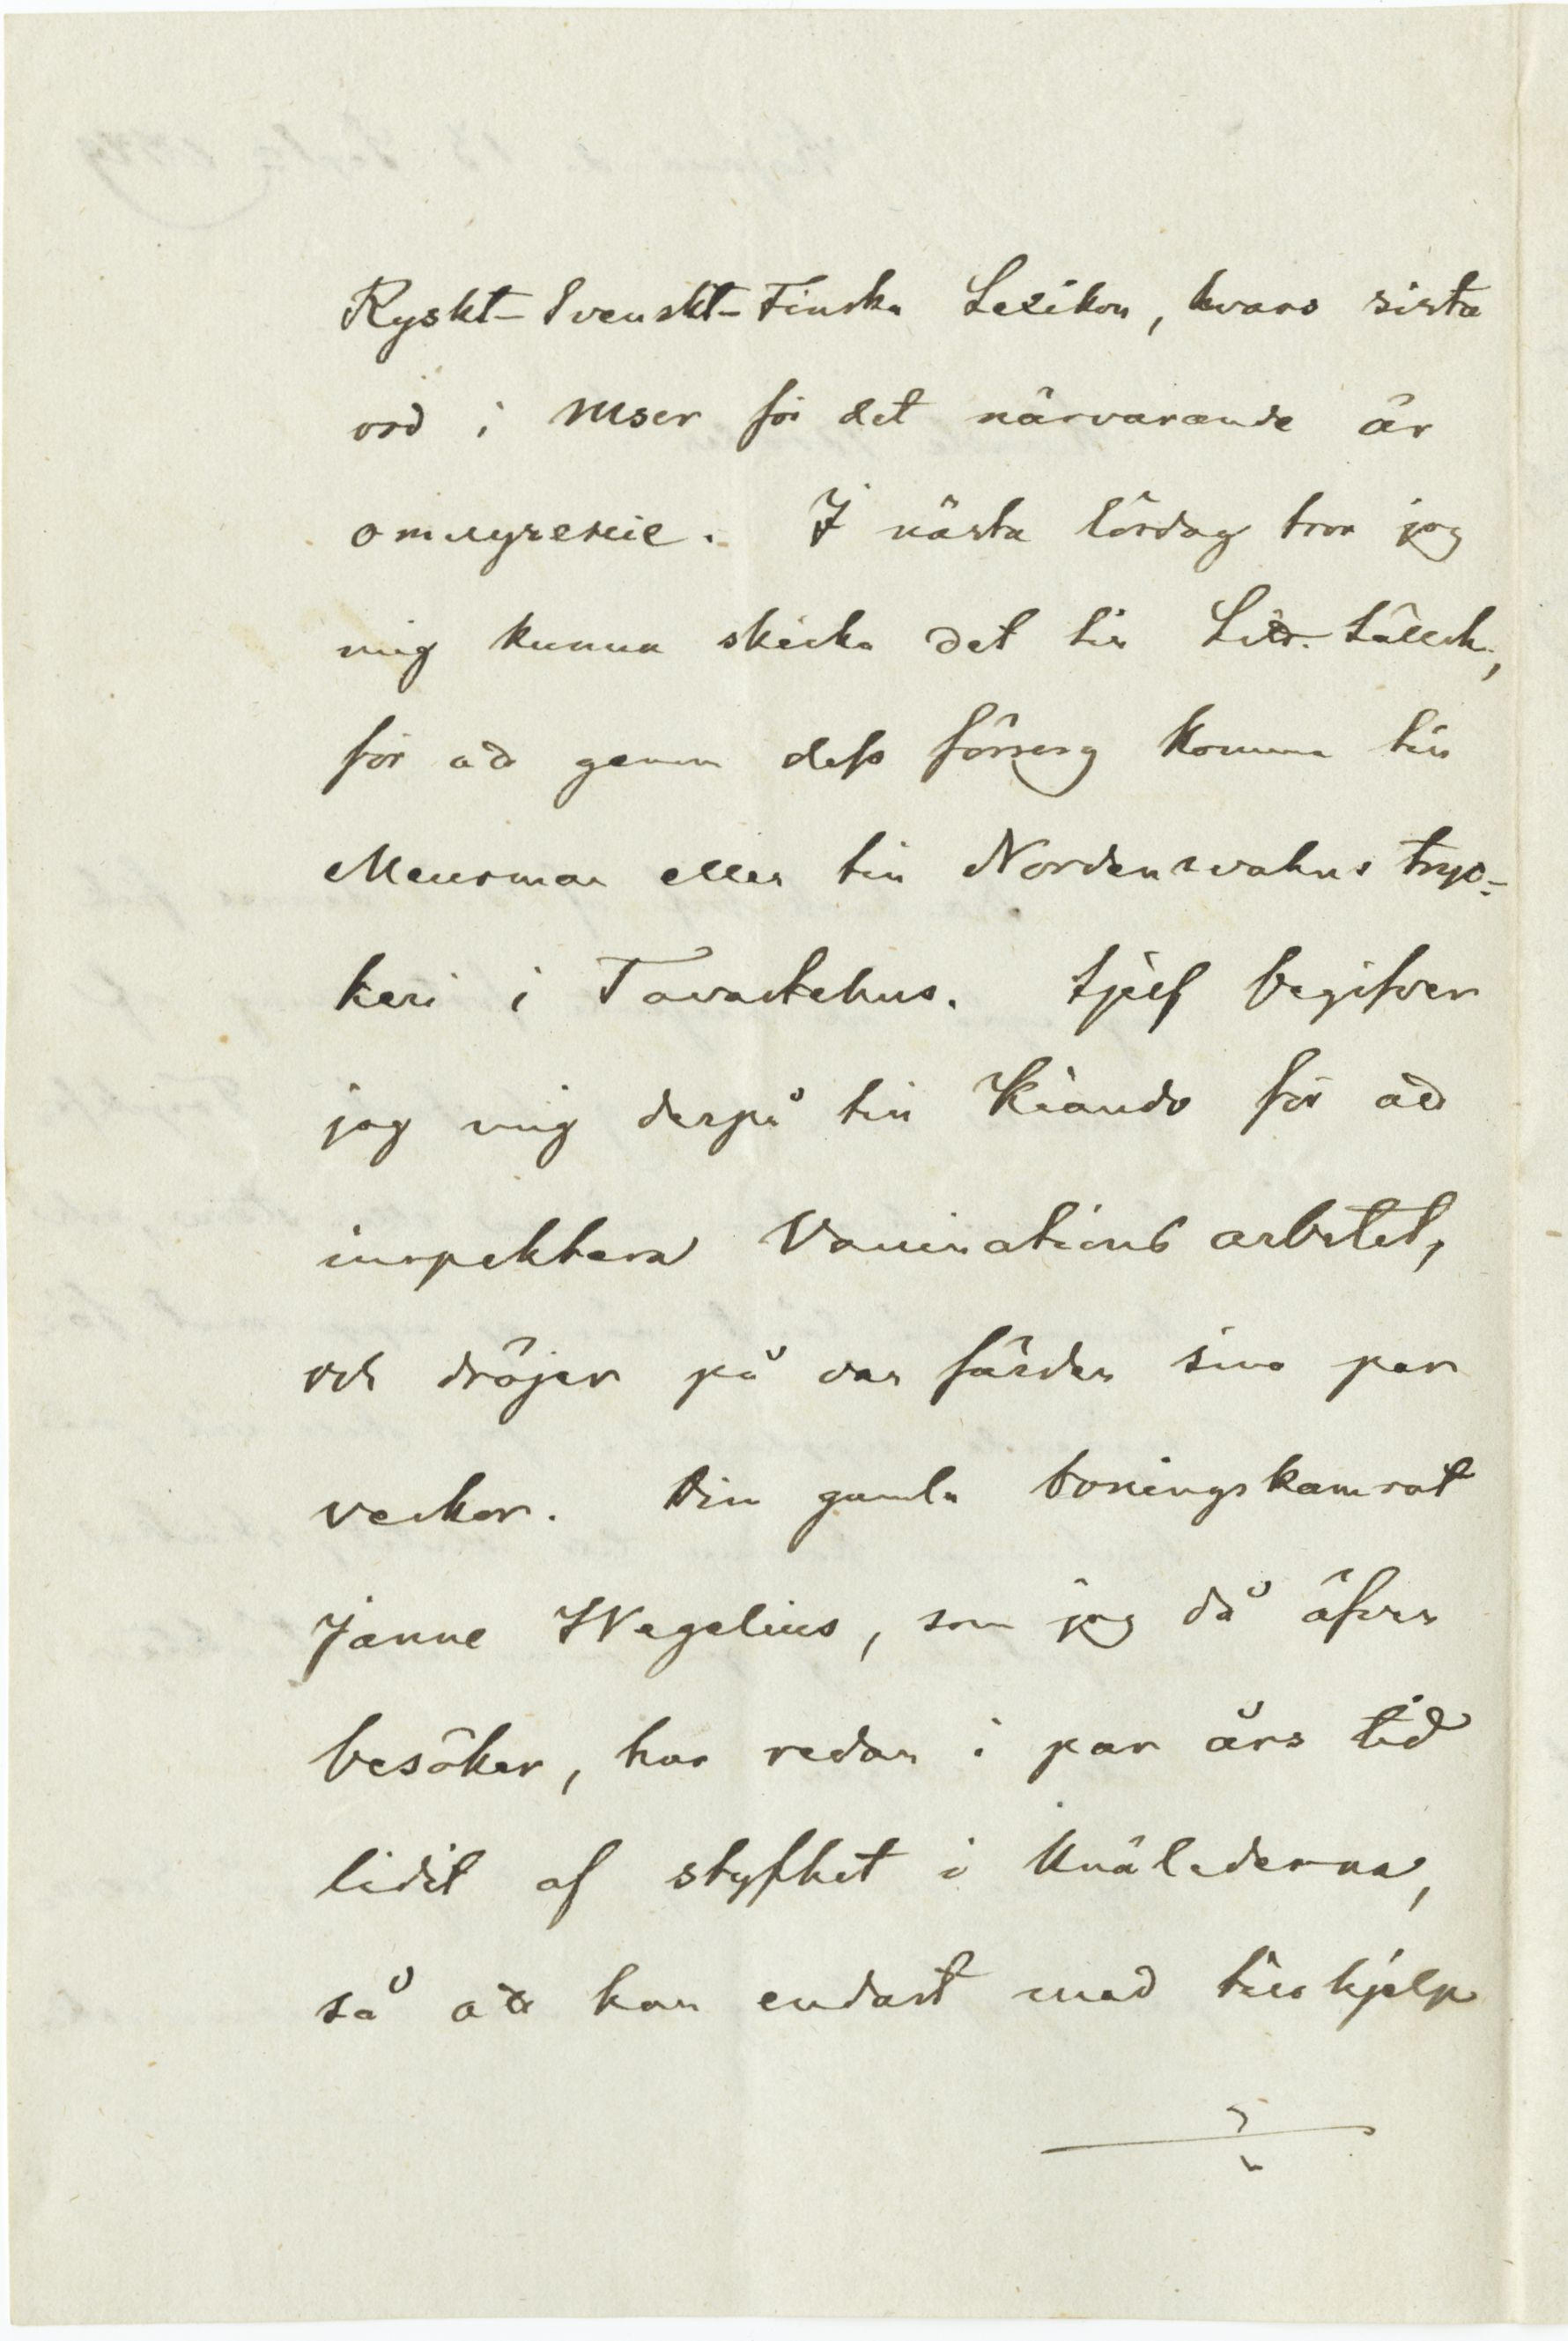 Ryskt-Svenskt-Finska Lexikon, hvars sista
ord i Mser för det närvarande är
отлученіе. I nästa lördag tror jag
mig kunna skicka det till Litt. Sällsk.,
för att genom dess försorg komma till
Meurman eller till Nordenswahns tryc-
keri i Tavastehus. Sjelf begifver
jag mig derpå till Kiando för att
inspektera Vaccinations arbetet,
och dröjer på den färden sina par
veckor. Din gamla boningskamrat
Janne Wegelius, som jag då äfven
besöker, har redan i par års tid
lidit af styfhet i knälederna,
så att han endast med tillhjelp